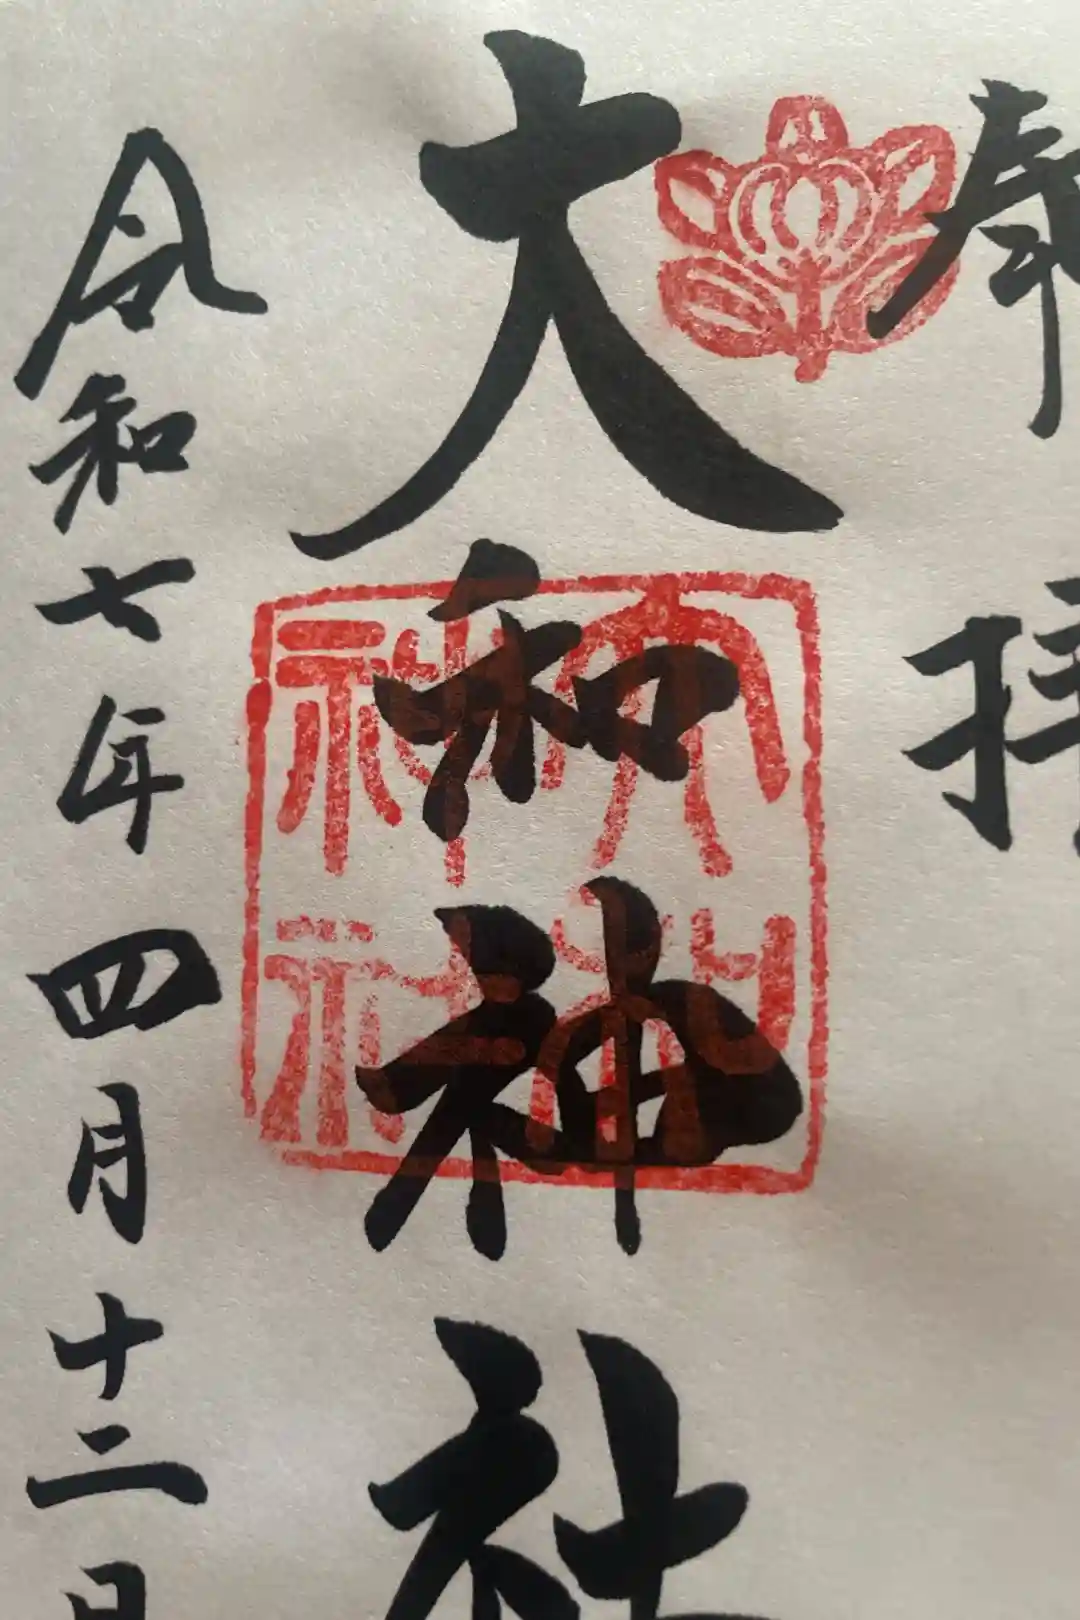 奉拝
大和神社
大和
神社
令和七年四月十二日